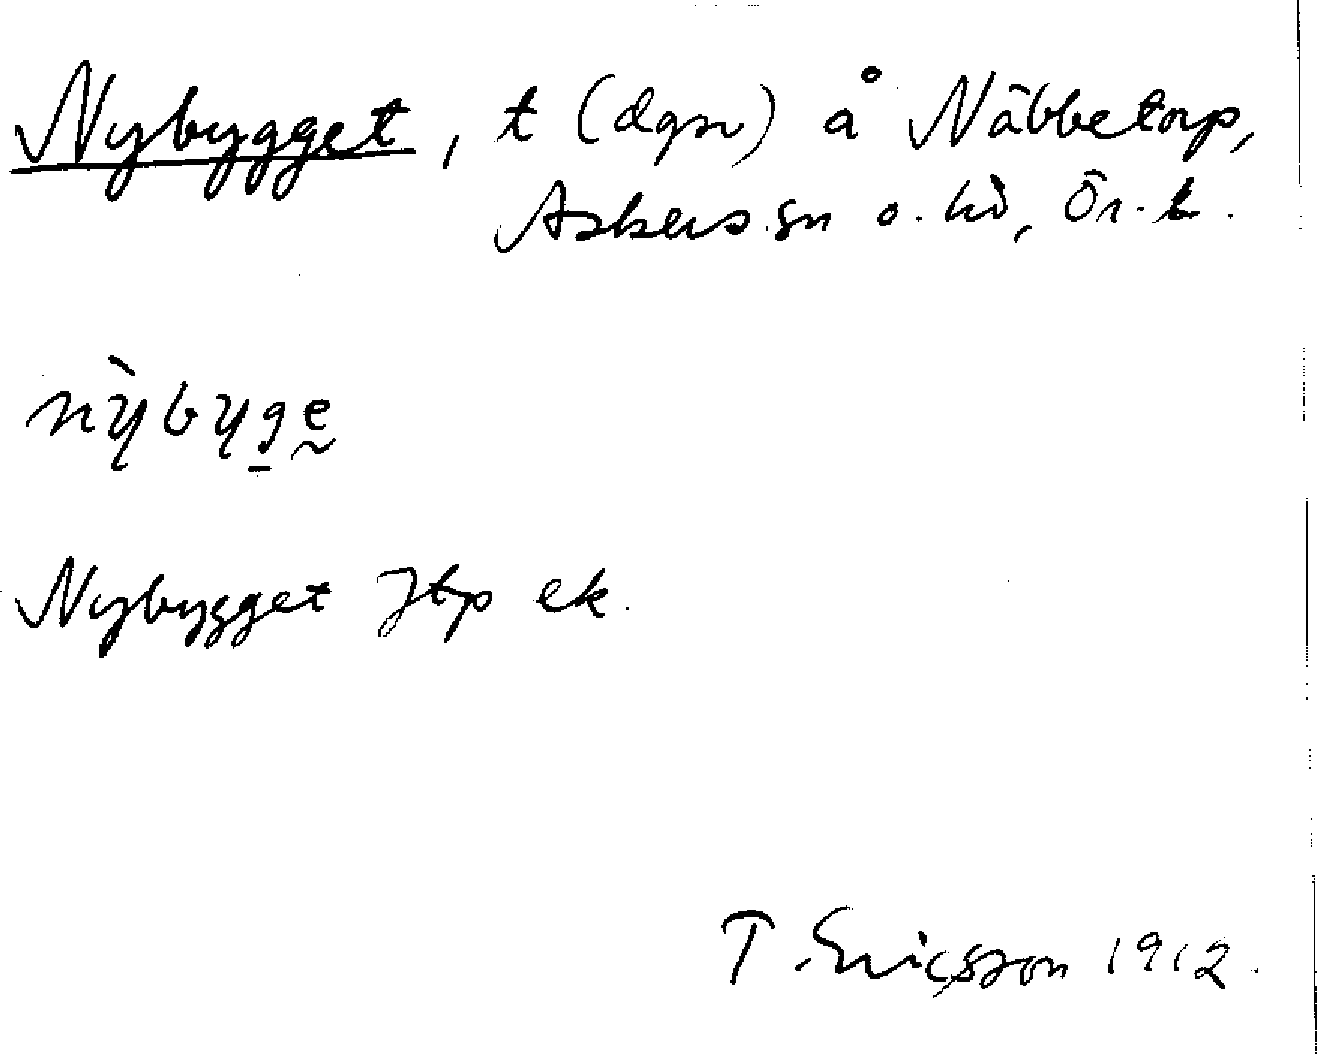 Nybygget, t (dqsv) å Näbbetorp,
Askers sn o. hd, Ör. l.
nỳbyge
Nybygget Jtp ek.
T. Ericsson 1912.